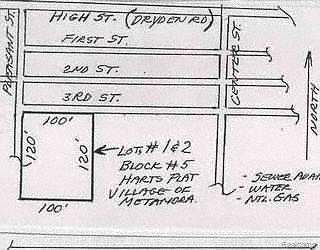 HIGH ST. (DRYDEN RD)
FIRST ST.
2ND ST.
3RD ST.
PLEASANT ST.
CENTER ST.
NORTH
100'
120'
120'
100'
LOTS # 1 & 2
BLOCK # 5
HARTS PLAT
VILLAGE OF
METAMORA.
- SEWER AVAI
- WATER
- NTL. GAS